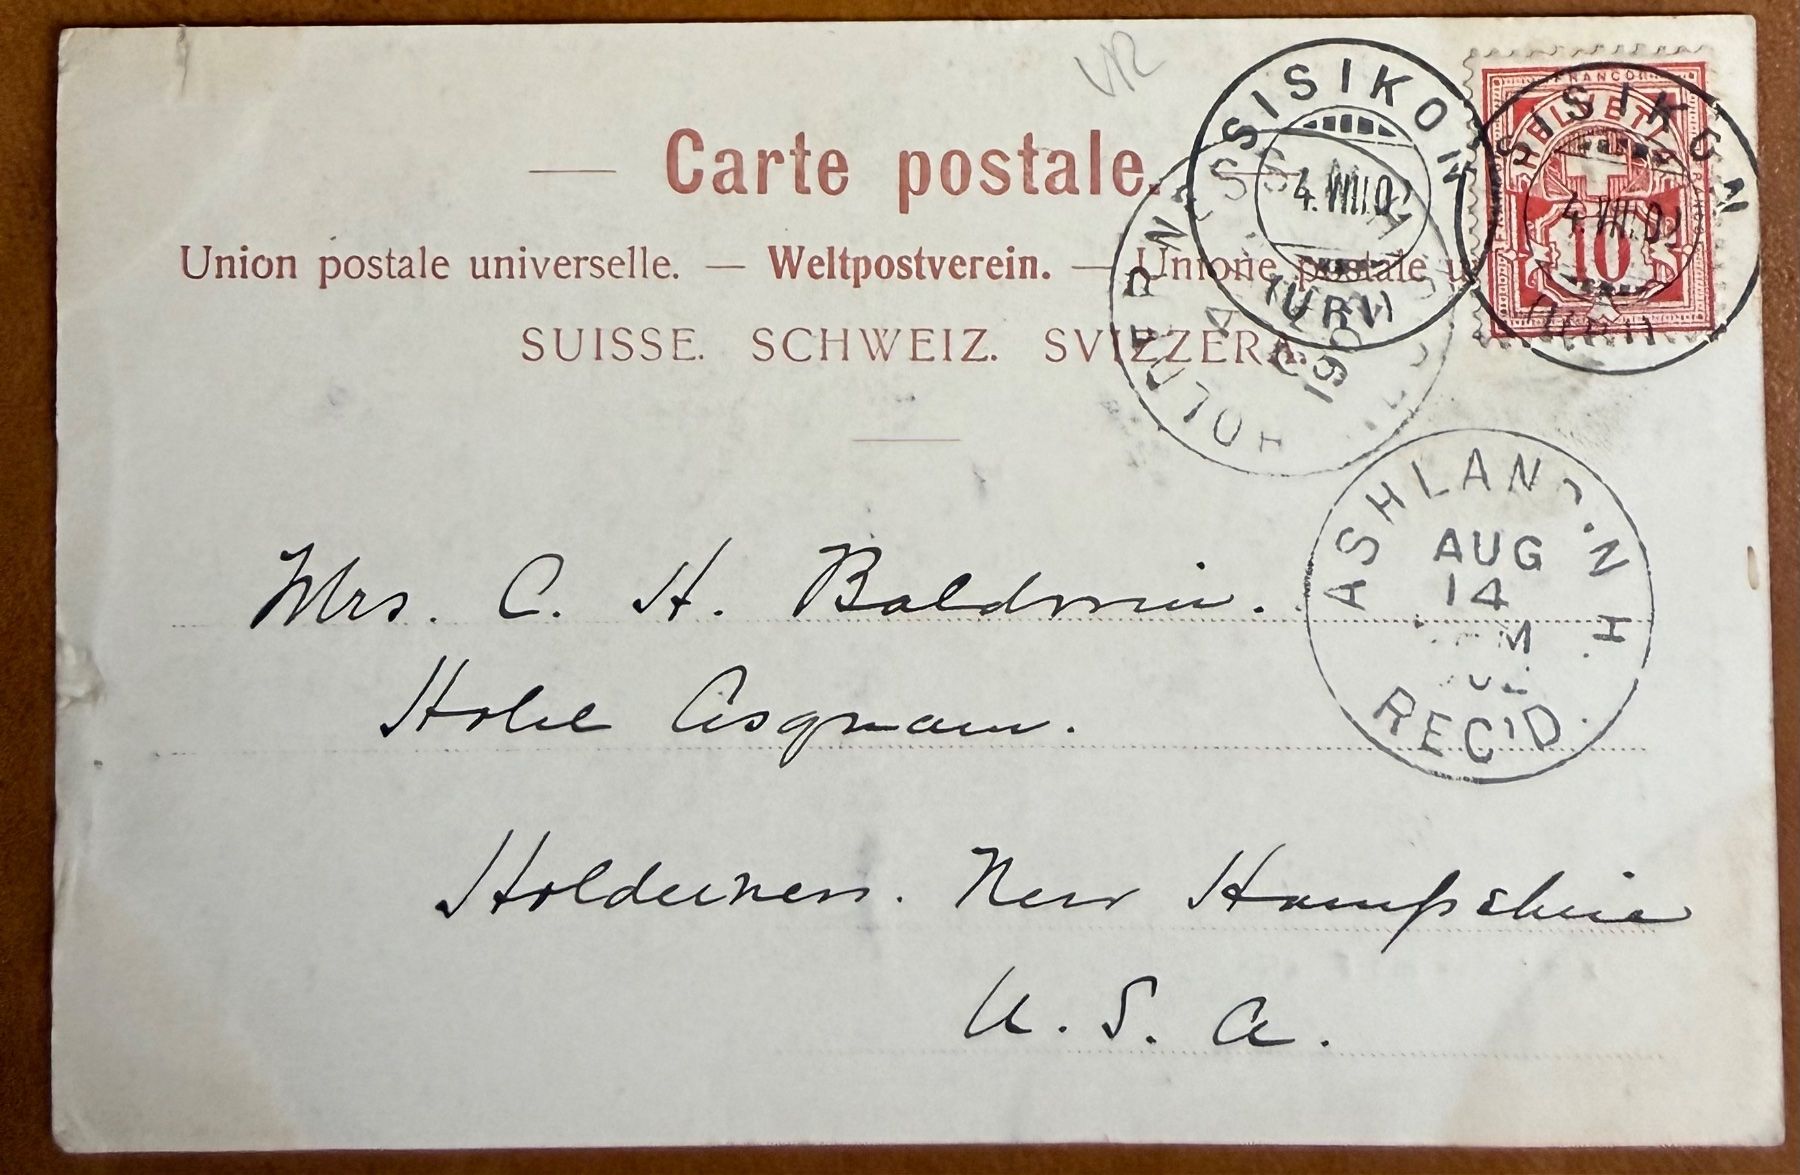 Carte postale.
Union postale universelle. — Weltpostverein. — Unione postale u
SUISSE. SCHWEIZ. SVIZZERA.
SISIKON
4.VIII.02
(URI)
FRANCO
HELVETIA
10
SISIKON
4.VIII.02
(URI)
HOLDERNESS
N.H.
1902
ASHLAND. N.H.
AUG
14
M
02
REC'D.
Mrs. C. H. Baldwin.
Hotel Asquam.
Holderness. New Hampshire
U. S. A.